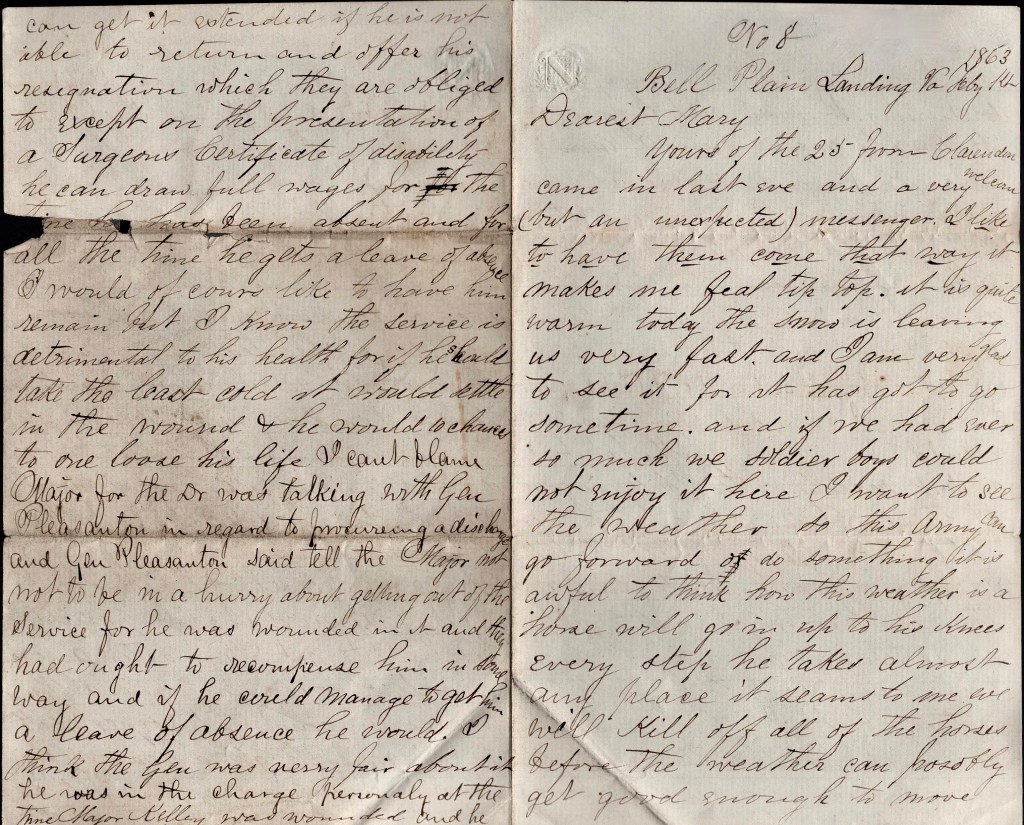 can get it extended if he is not
able to return and offer his
resignation which they are obliged
to except on the presentation of
a Surgeons Certificate of disability
he can draw full wages for the
he has been absent and for
all the time he gets a leave of absence
I would of cours like to have him
remain but I know the service is
detrimental to his health for if he should
take the least cold it would settle
in the wound & he would 10 chances
to one loose his life I cant blame
Major for the Dr was talking with Gen
Pleasanton in regard to procureing a discharge
and Gen Pleasanton said tell the Major not
not to be in a hurry about getting out of the
service for he was wounded in it and they
had ought to recompense him in some
way and if he could manage to get him
a leave of absence he would. I
think the Gen was verry fair about it
he was in the charge personaly at the
time Major Kelley was wounded and he
No 8
1863
Bell Plain Landing Va Feby 1st
Dearest Mary
Yours of the 25 from Clarendon
came in last eve and a very welcom
(but an unexpected) messenger. I like
to have them come that way it
makes me feal tip top. it is quite
warm today the snow is leaving
us very fast and I am very glad
to see it for it has got to go
sometime. and if we had ever
so much we soldier boys could
not enjoy it here I want to see
the weather so this Army can
go forward or do something it is
awful to think how this weather is a
horse will go in up to his knees
every step he takes almost
any place it seams to me we
will kill off all of the horses
before the weather can possobly
get good enough to move